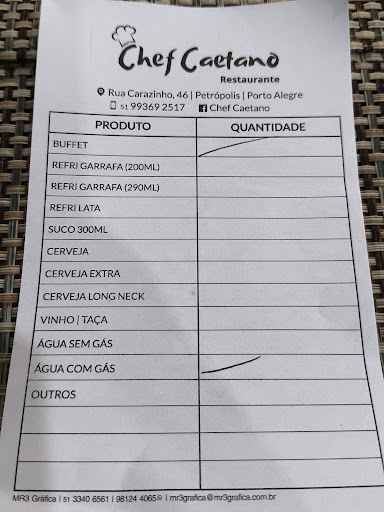 Chef Caetano
Restaurante
Rua Carazinho, 46 | Petrópolis | Porto Alegre
51 99369 2517 Chef Caetano
PRODUTO QUANTIDADE
BUFFET
REFRI GARRAFA (200ML)
REFRI GARRAFA (290ML)
REFRI LATA
SUCO 300ML
CERVEJA
CERVEJA EXTRA
CERVEJA LONG NECK
VINHO | TAÇA
ÁGUA SEM GÁS
ÁGUA COM GÁS
OUTROS
MR3 Gráfica | 51 3340 6561 | 98124 4065 | mr3grafica@mr3grafica.com.br